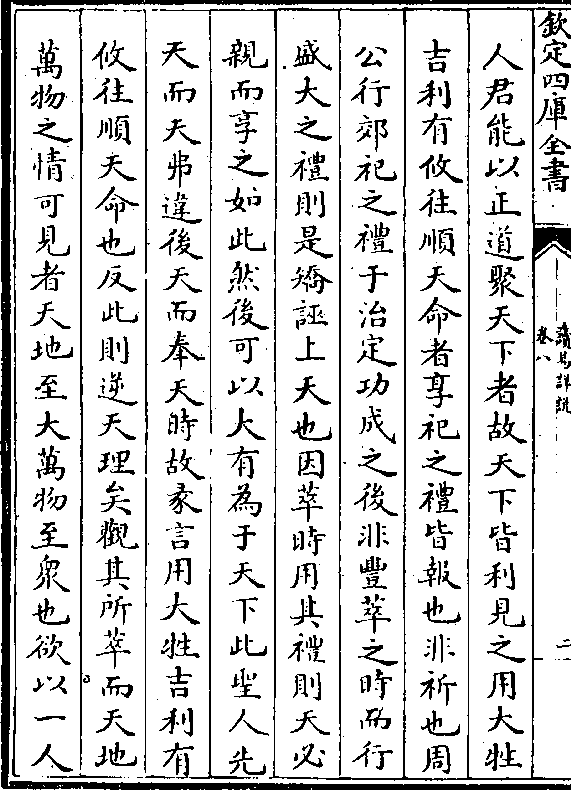 欽定四庫全書
讀易詳說
卷八
二
人君能以正道聚天下者故天下皆利見之用大牲
吉利有攸往順天命者享祀之禮皆報也非祈也周
公行郊祀之禮于治定功成之後非豐萃之時而行
盛大之禮則是矯誣上天也因萃時用其禮則天必
親而享之如此然後可以大有為于天下此聖人先
天而天弗違後天而奉天時故彖言用大牲吉利有
攸往順天命也反此則逆天理矣觀其所萃而天地
萬物之情可見者天地至大萬物至衆也欲以一人